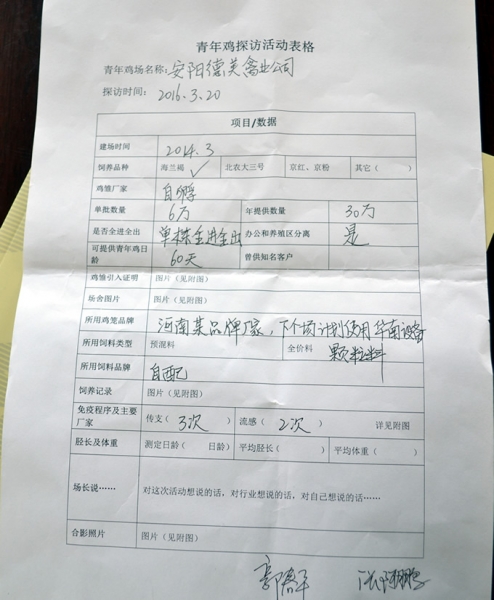 青年鸡探访活动表格
青年鸡场名称:安阳德美禽业公司
探访时间: 2016.3.20
项目/数据
建场时间 2014.3
饲养品种 海兰褐 ✓ 北农大三号 京红、京粉 其它( )
鸡雏厂家 自孵
单批数量 6万 年提供数量 30万
是否全进全出 单栋全进全出 办公和养殖区分离 是
可提供青年鸡日龄 60天 曾供知名客户
鸡雏引入证明 图片(见附图)
场舍图片 图片(见附图)
所用鸡笼品牌 河南某品牌厂家,下个场计划使用华南设备
所用饲料类型 预混料 全价料 颗粒料
所用饲料品牌 自配
饲养记录 图片(见附图)
免疫程序及主要厂家 传支( 3次 ) 流感( 2次 ) 详见附图
胫长及体重 测定日龄( 日龄) 平均胫长( ) 平均体重( )
场长说…… 对这次活动想说的话,对行业想说的话,对自己想说的话……
合影照片 图片(见附图)